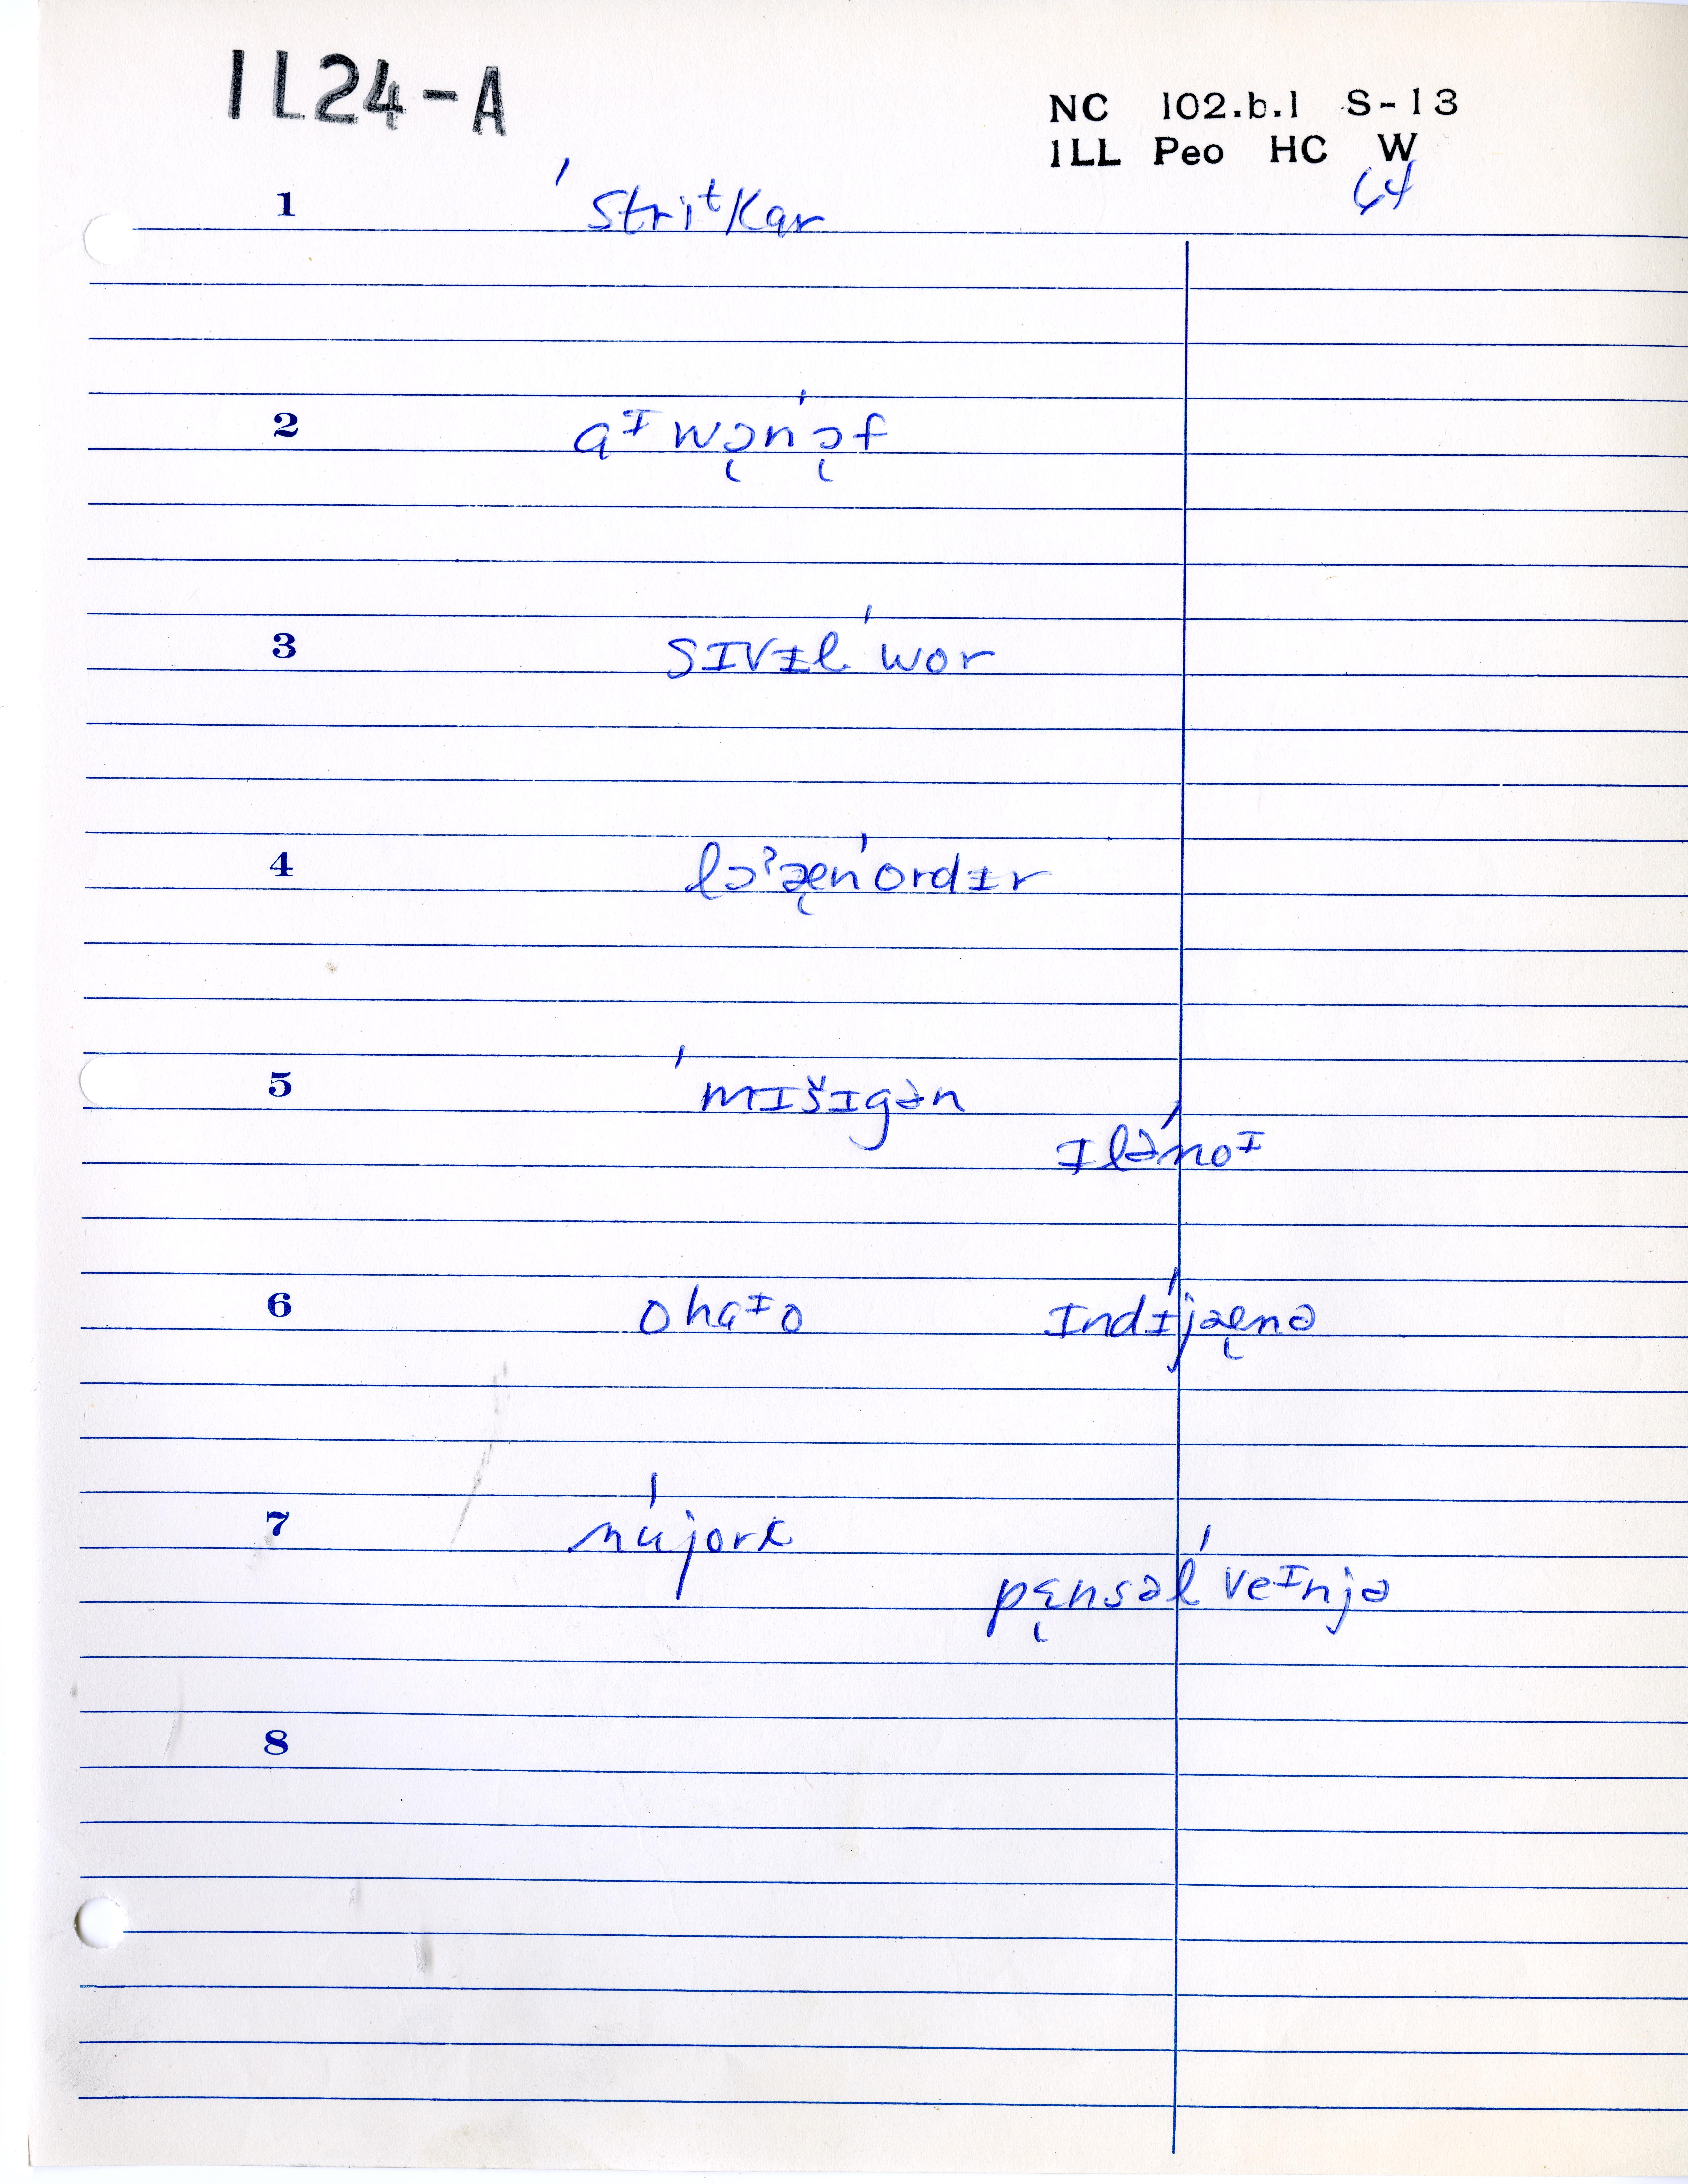 1L24-A
NC 102.b.1 S-13
1LL Peo HC W
64
1 ˈstriᵗkar
2 aᶦwɔ̨nˈɔ̨f
3 sɪvɪlˈwor
4 lɔˀæ̨nˈordɪr
5 ˈmɪšɪgən
ɪləˈnoᶦ
6 ohaᶦo ɪndɪˈjæ̨nə
7 nuˈjork
pɛ̨nsəlˈveᶦnjə
8